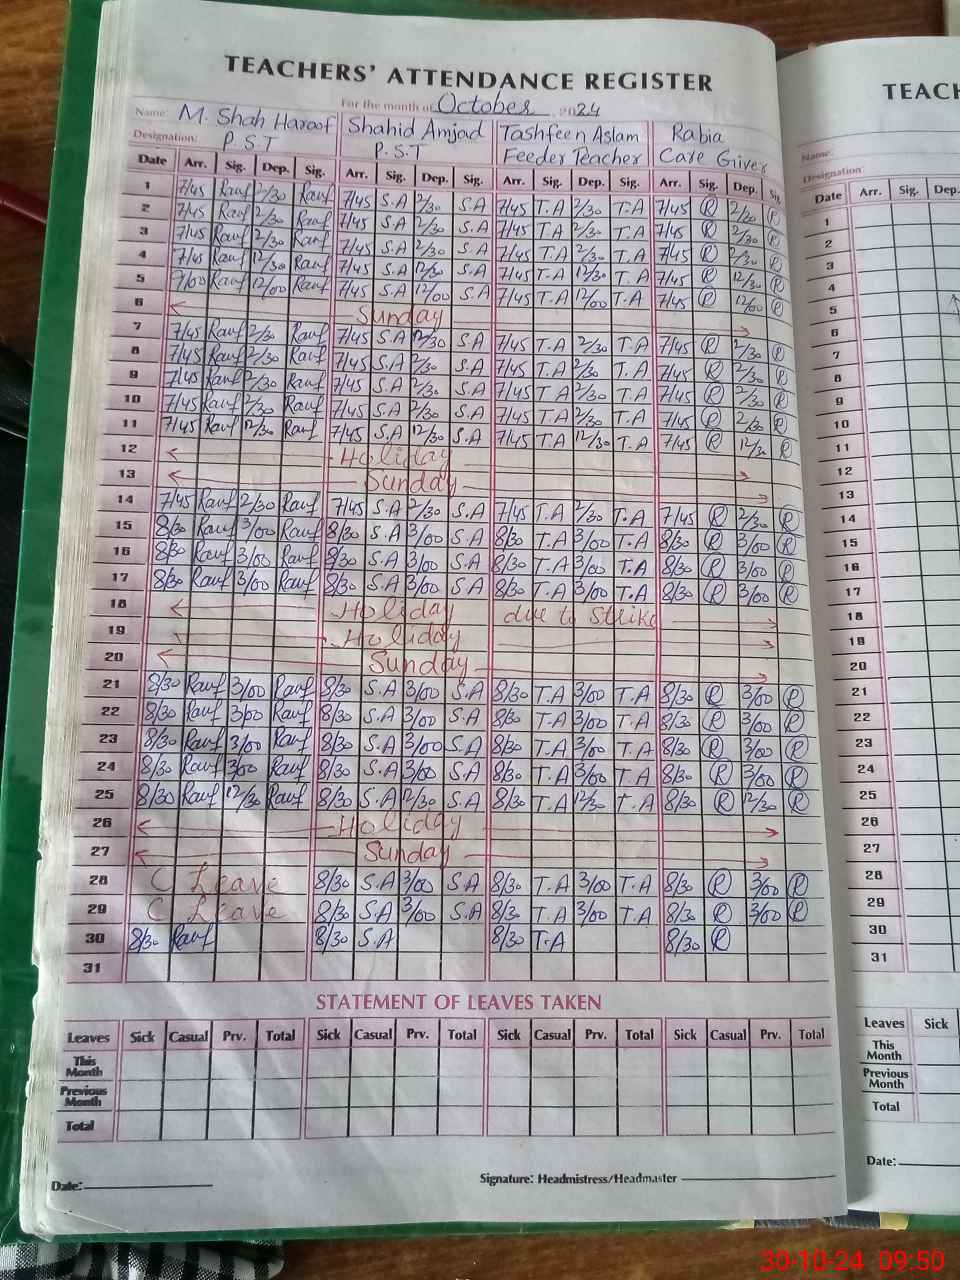 TEACHERS' ATTENDANCE REGISTER
For the month of October 2024
Name: M. Shah Haroof Shahid Amjad Tashfeen Aslam Rabia
Designation: P.S.T P.S.T Feeder Teacher Care Giver
Date Arr. Sig. Dep. Sig. Arr. Sig. Dep. Sig. Arr. Sig. Dep. Sig. Arr. Sig. Dep. Sig.
1 7/45 Rauf 2/30 Rauf 7/45 S.A 2/30 S.A 7/45 T.A 2/30 T.A 7/45 R 2/30 R
2 7/45 Rauf 2/30 Rauf 7/45 S.A 2/30 S.A 7/45 T.A 2/30 T.A 7/45 R 2/30 R
3 7/45 Rauf 2/30 Rauf 7/45 S.A 2/30 S.A 7/45 T.A 2/30 T.A 7/45 R 2/30 R
4 7/45 Rauf 12/30 Rauf 7/45 S.A 12/30 S.A 7/45 T.A 12/30 T.A 7/45 R 12/30 R
5 Rauf 12/00 Rauf 7/45 S.A 12/00 S.A 7/45 T.A 12/00 T.A 7/45 R 12/00 R
6 Sunday
7 7/45 Rauf 2/30 Rauf 7/45 S.A S.A 7/45 T.A 2/30 T.A 7/45 R 2/30 R
8 7/45 Rauf 2/30 Rauf 7/45 S.A 2/30 S.A 7/45 T.A 2/30 T.A 7/45 R 2/30 R
9 7/45 Rauf 2/30 Rauf 7/45 S.A 2/30 S.A 7/45 T.A 2/30 T.A 7/45 R 2/30 R
10 7/45 Rauf 2/30 Rauf 7/45 S.A 2/30 S.A 7/45 T.A 2/30 T.A 7/45 R 2/30 R
11 7/45 Rauf 12/30 Rauf 7/45 S.A 12/30 S.A 7/45 T.A 12/30 T.A 7/45 R 12/30 R
12 Holiday
13 Sunday
14 7/45 Rauf 2/30 Rauf 7/45 S.A 2/30 S.A 7/45 T.A 2/30 T.A 7/45 R 2/30 R
15 8/30 Rauf 3/00 Rauf 8/30 S.A 3/00 S.A 8/30 T.A 3/00 T.A 8/30 R 3/00 R
16 8/30 Rauf 3/00 Rauf 8/30 S.A 3/00 S.A 8/30 T.A 3/00 T.A 8/30 R 3/00 R
17 8/30 Rauf 3/00 Rauf 8/30 S.A 3/00 S.A 8/30 T.A 3/00 T.A 8/30 R 3/00 R
18 Holiday due to Strike
19 Holiday
20 Sunday
21 8/30 Rauf 3/00 Rauf 8/30 S.A 3/00 S.A 8/30 T.A 3/00 T.A 8/30 R 3/00 R
22 8/30 Rauf 3/00 Rauf 8/30 S.A 3/00 S.A 8/30 T.A 3/00 T.A 8/30 R 3/00 R
23 8/30 Rauf 3/00 Rauf 8/30 S.A 3/00 S.A 8/30 T.A 3/00 T.A 8/30 R 3/00 R
24 8/30 Rauf 3/00 Rauf 8/30 S.A 3/00 S.A 8/30 T.A 3/00 T.A 8/30 R 3/00 R
25 8/30 Rauf 12/30 Rauf 8/30 S.A 12/30 S.A 8/30 T.A 12/30 T.A 8/30 R 12/30 R
26 Holiday
27 Sunday
28 C Leave 8/30 S.A 3/00 S.A 8/30 T.A 3/00 T.A 8/30 R 3/00 R
29 C Leave 8/30 S.A 3/00 S.A 8/30 T.A 3/00 T.A 8/30 R 3/00 R
30 8/30 Rauf 8/30 S.A 8/30 T.A 8/30 R
31
STATEMENT OF LEAVES TAKEN
Leaves Sick Casual Prv. Total Sick Casual Prv. Total Sick Casual Prv. Total Sick Casual Prv. Total
This Month
Previous Month
Total
Date:
Signature: Headmistress/Headmaster
TEACH
Name:
Designation:
Date Arr. Sig. Dep.
1
2
3
4
5
6
7
8
9
10
11
12
13
14
15
16
17
18
19
20
21
22
23
24
25
26
27
28
29
30
31
Leaves Sick
This Month
Previous Month
Total
Date:
30-10-24 09:50